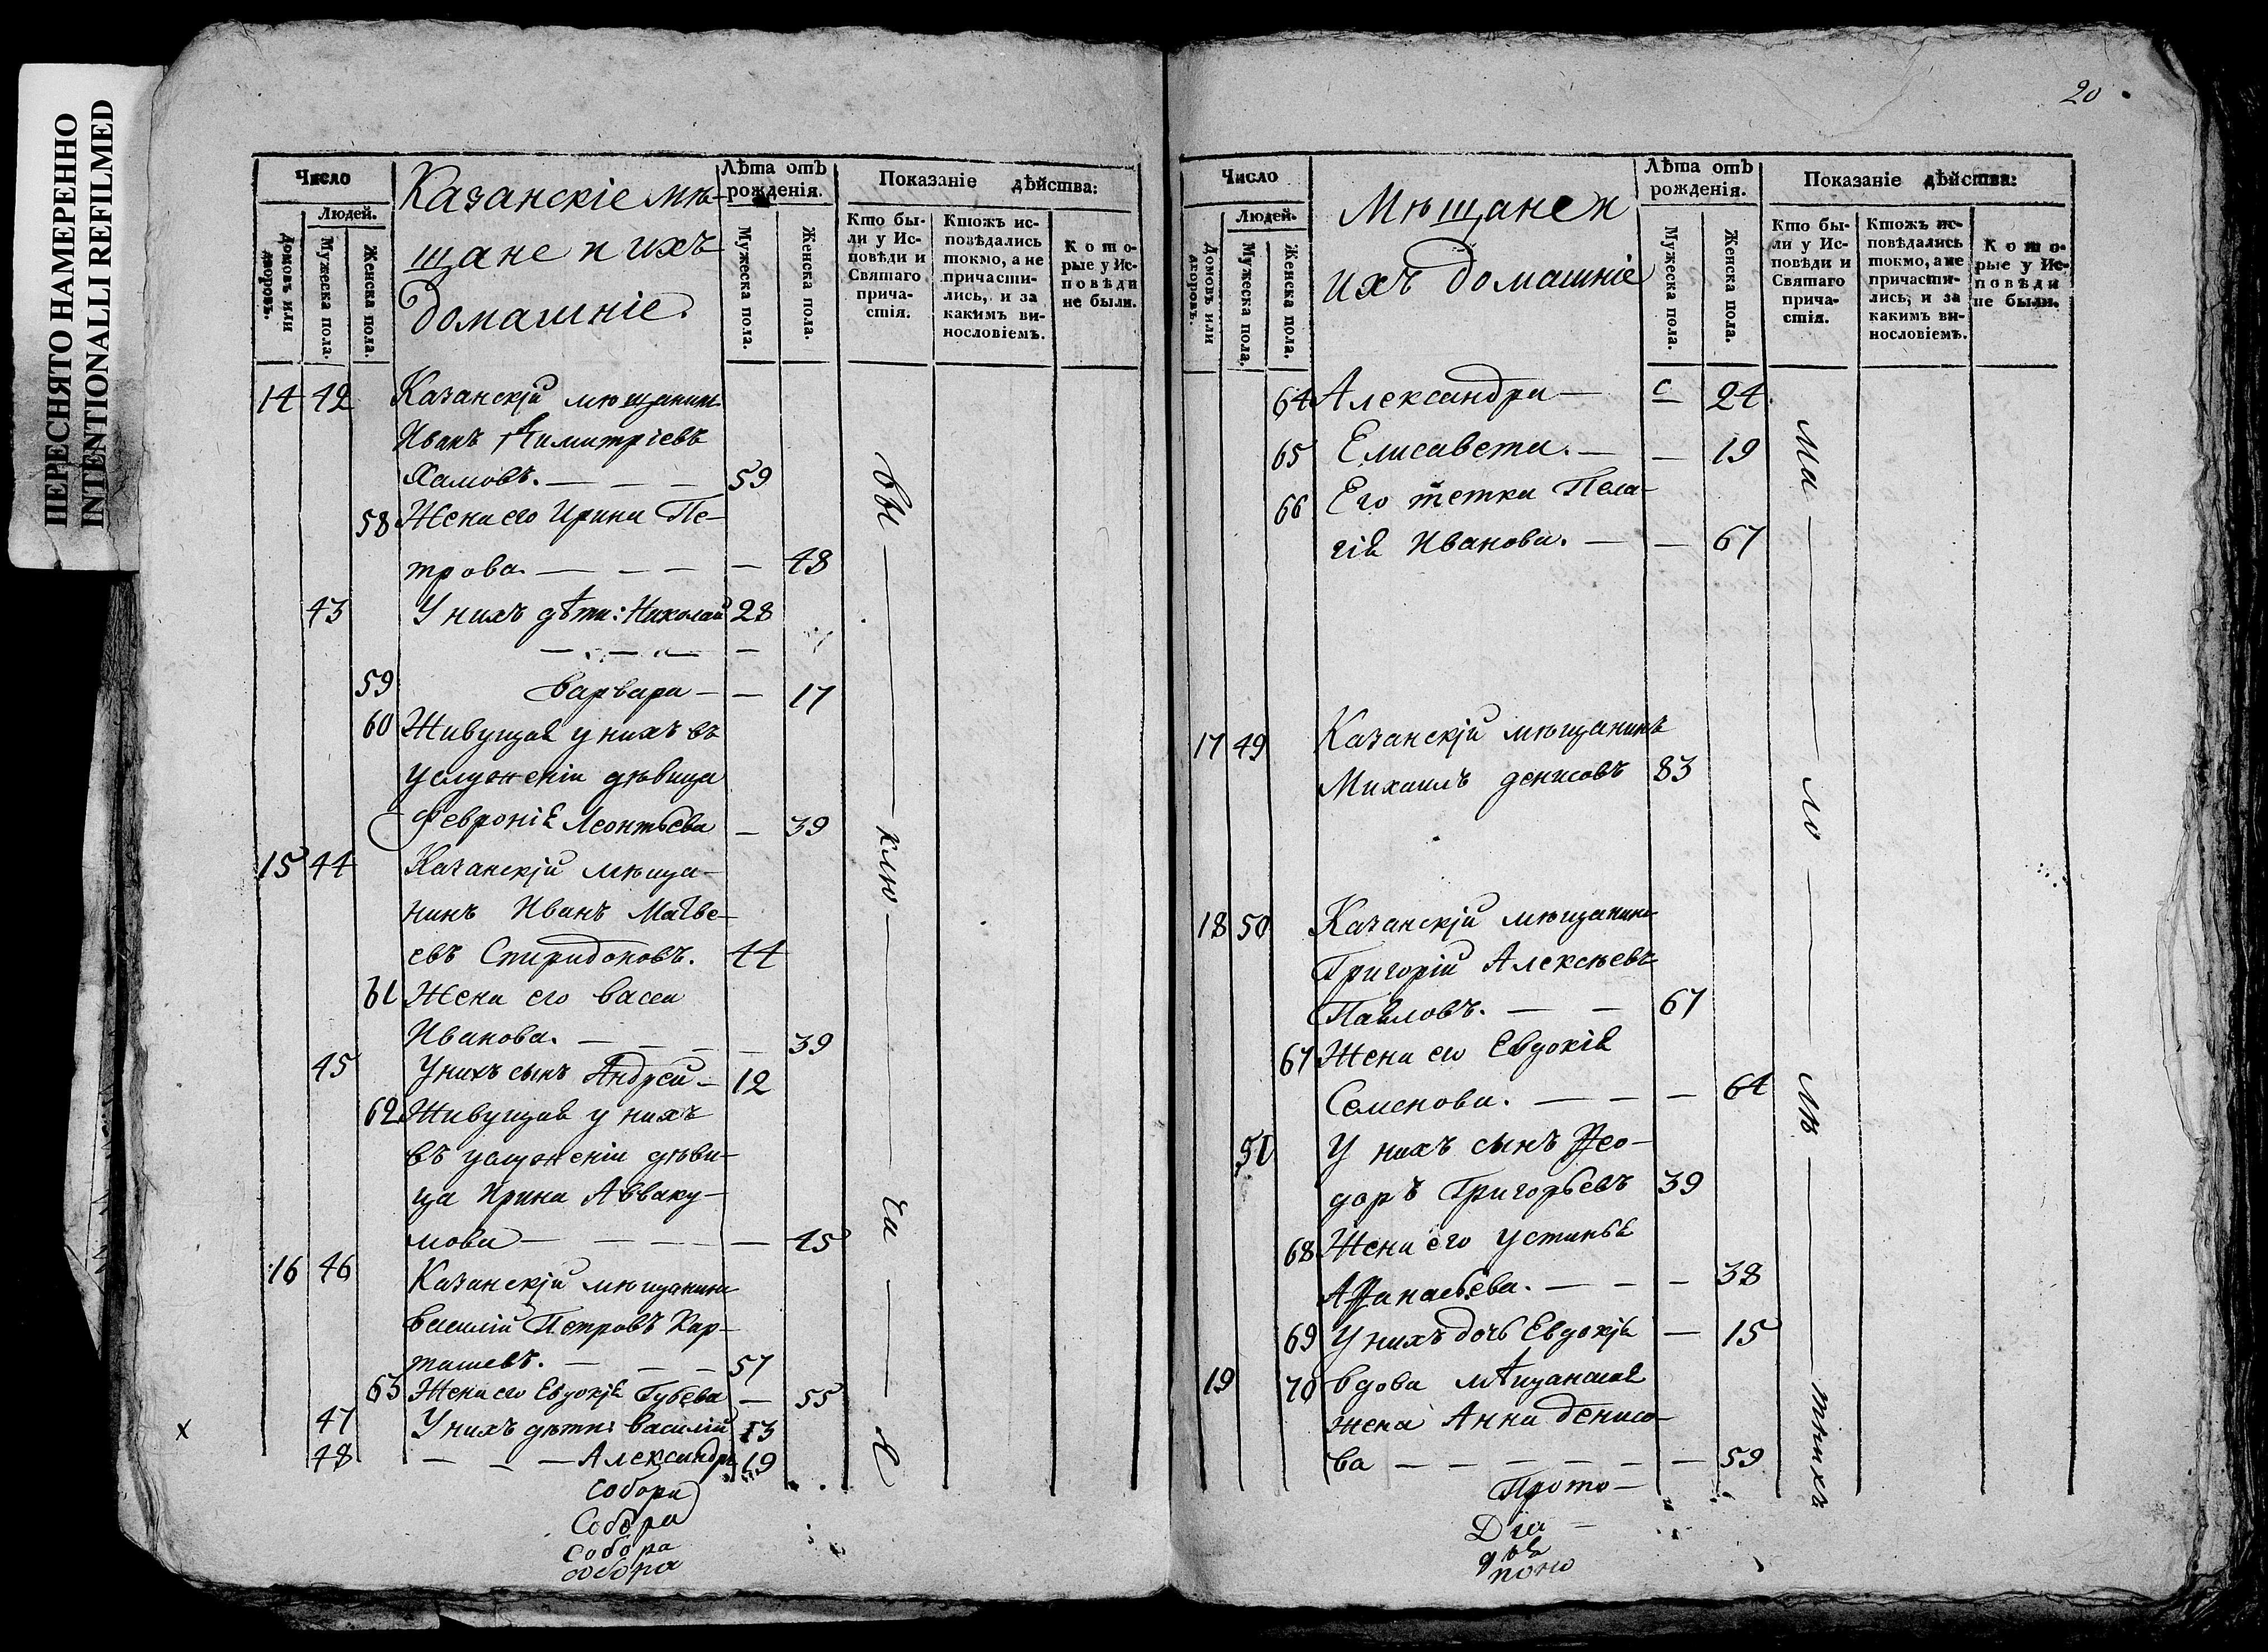 ПЕРЕСНЯТО НАМЕРЕННО
INTENTIONALLI REFILMED
Число
Людей.
Домовъ или дворовъ.
Мужеска пола.
Женска пола.
Казанскіе мѣ-
щане и ихъ
домашніе.
Лѣта отъ рожденія.
Мужеска пола.
Женска пола.
Показаніе дѣйства:
Кто бы-
ли у Ис-
повѣди и
Святаго
прича-
стія.
Ктожъ ис-
повѣдались
токмо, а не
причасти-
лись, и за
какимъ ви-
нословіемъ.
Кото-
рые у Ис-
повѣди
не были.
14 42 Казанскій мѣщанинъ
Иванъ Димитріевъ
Хамовъ. — — — 59
58 Жена его Ирина Пе-
трова. — — — — — 48
43 У нихъ дѣти: Николай 28
59 Варвара — — 17
60 Живущая у нихъ въ
услуженіи дѣвица
Февронія Леонтьева — 39
15 44 Казанскій мѣща-
нинъ Иванъ Матве-
евъ Спиридоновъ. 44
61 Жена его Васса
Иванова. — — — — 39
45 У нихъ сынъ Андрей — 12
62 Живущая у нихъ
въ услуженіи дѣви-
ца Ирина Авваку-
мова — — — — — 45
16 46 Казанскій мѣщанинъ
Василій Петровъ Кар-
ташевъ. — — — 57
63 Жена его Евдокія Губева — 55
47 У нихъ дѣти: Василій 13
48 — — — Александръ 19
х
Собора
Собора
Собора
собора
бы — клю — ча — я
20
Число
Людей.
Домовъ или дворовъ.
Мужеска пола.
Женска пола.
Мѣщане и
ихъ домашніе
Лѣта отъ рожденія.
Мужеска пола.
Женска пола.
Показаніе дѣйства:
Кто бы-
ли у Ис-
повѣди и
Святаго
прича-
стія.
Ктожъ ис-
повѣдались
токмо, а не
причасти-
лись, и за
какимъ ви-
нословіемъ.
Кото-
рые у Ис-
повѣди
не были.
64 Александра — с 24
65 Елисавета. — — 19
66 Его тетка Пела-
гія Иванова. — — 67
17 49 Казанскій мѣщанинъ
Михаилъ Денисовъ 83
18 50 Казанскій мѣщанинъ
Григорій Алексѣевъ
Павловъ. — — 67
67 Жена его Евдокія
Семенова. — — — 64
51 У нихъ сынъ Ѳео-
доръ Григорьевъ 39
68 Жена его Устинья
Аѳанасьева. — — — 38
69 У нихъ дочь Евдокія — 15
19 70 Вдова мѣщанская
жена Анна Денисо-
ва — — — — — — 59
Прото-
Dia -
поно
ма — ло — лѣ — тнихъ